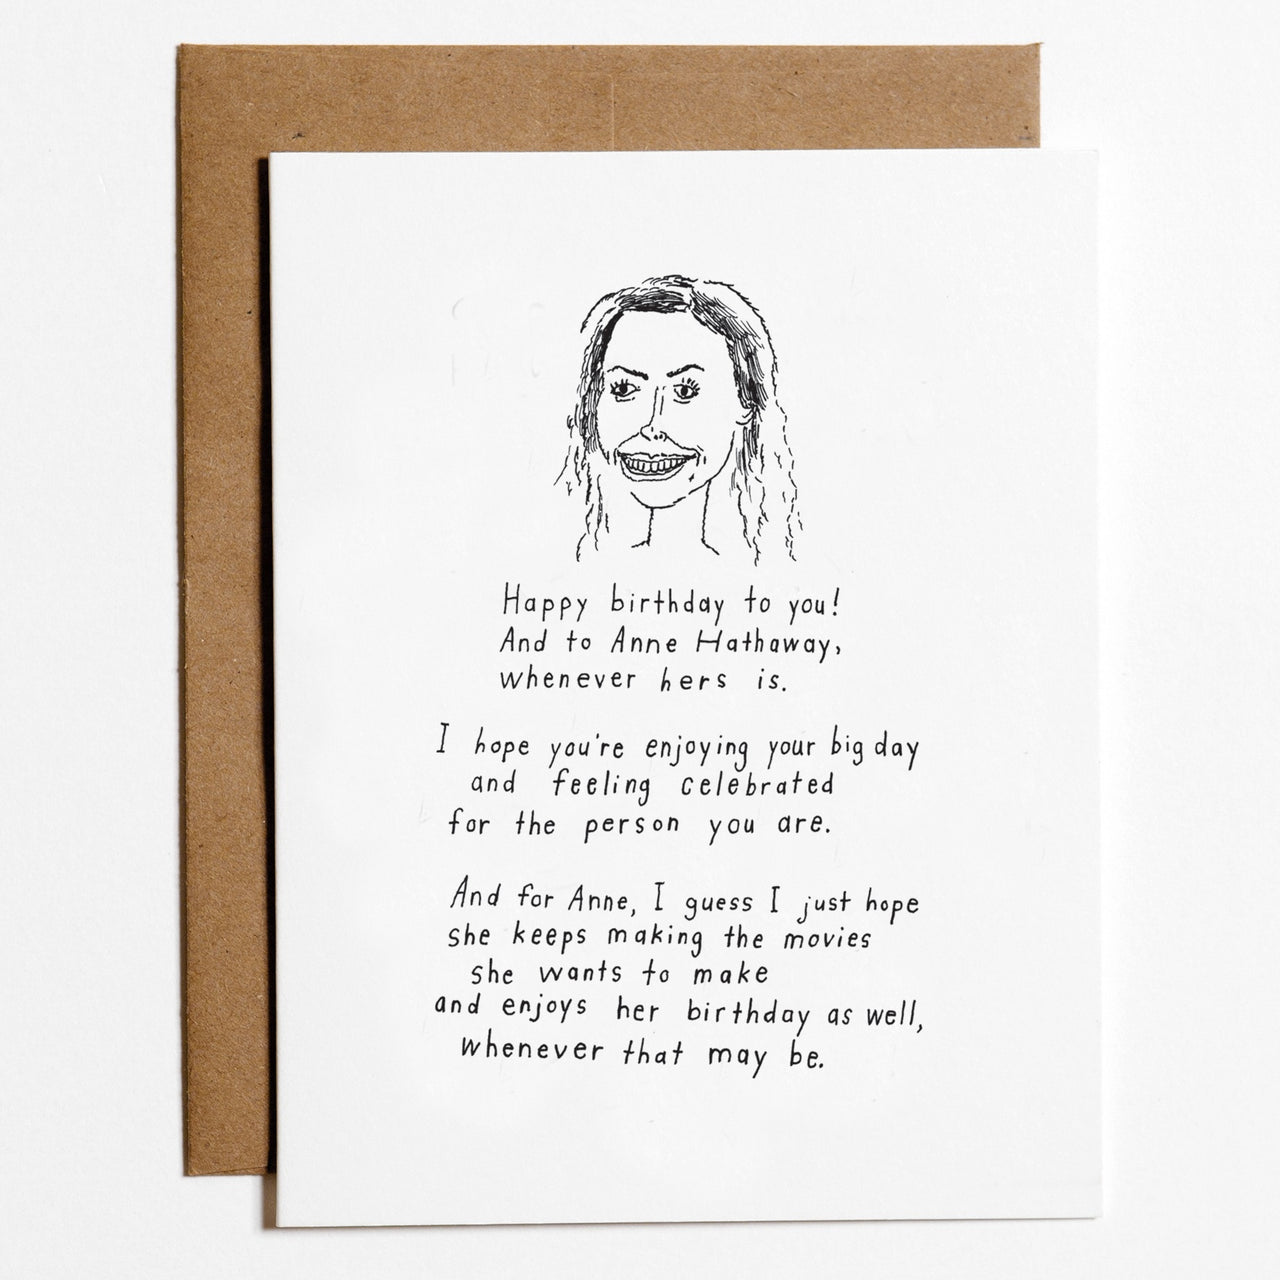 Happy birthday to you!
And to Anne Hathaway,
whenever hers is.
I hope you're enjoying your big day
and feeling celebrated
for the person you are.
And for Anne, I guess I just hope
she keeps making the movies
she wants to make
and enjoys her birthday as well,
whenever that may be.